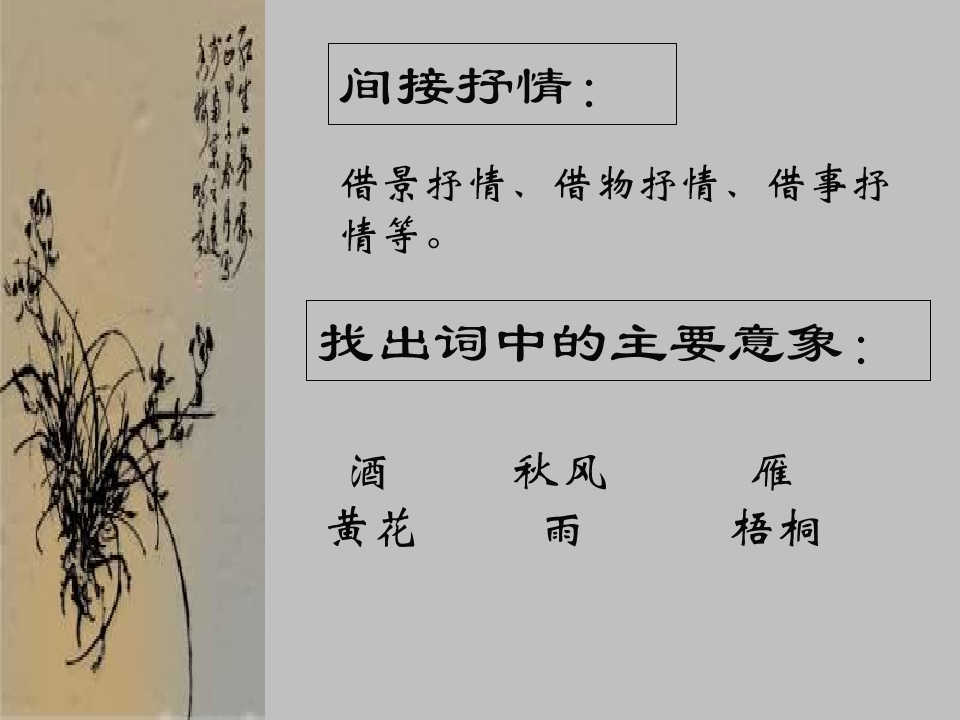 间接抒情：
借景抒情、借物抒情、借事抒
情等。
找出词中的主要意象：
酒 秋风 雁
黄花 雨 梧桐